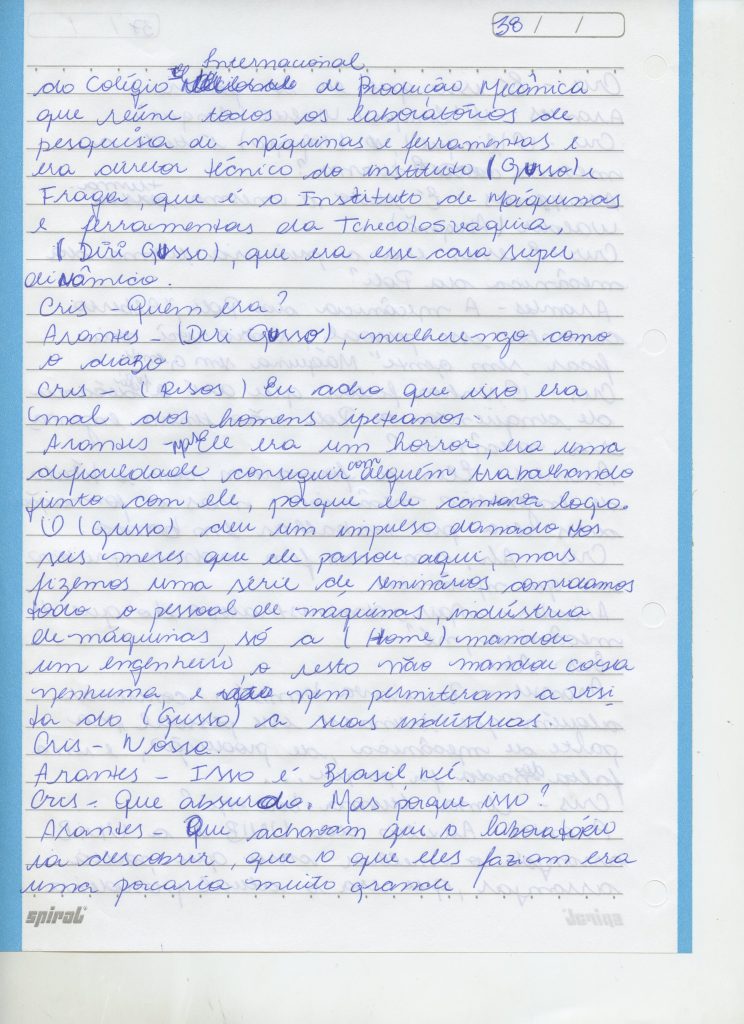 38 / /
Internacional
do Colégio de Produção Mecânica
que reúne todos os laboratórios de
pesquisa de máquinas e ferramentas e
era diretor técnico do instituto (Gusso) e
Fraga que é o Instituto de Máquinas
e ferramentas da Tchecolosvaquia.
(Diri Gusso), que era esse cara super
dinâmico.
Cris Quem era?
Arantes - (Diri Gusso), mulherengo como
o diabo
Cris - (Risos) Eu acho que isso era
mal dos homens ipeteanos.
Arantes - mas Ele era um horror, era uma
dificuldade conseguir com alguém trabalhando
junto com ele, porque ele cantava logo.
O (Gusso) deu um impulso danado nos
seis meses que ele passou aqui, mas
fizemos uma série de seminários, convidamos
todo o pessoal de máquinas, indústria
de máquinas, só a (Home) mandou
um engenheiro, o resto não mandou coisa
nenhuma, e nem permitiram a visi
ta do (Gusso) a suas indústrias.
Cris - Nossa
Arantes - Isso é Brasil né
Cris - Que absurdo. Mas porque isso?
Arantes - Que achavam que o laboratório
ia descobrir, que o que eles faziam era
uma porcaria muito grande
spiral